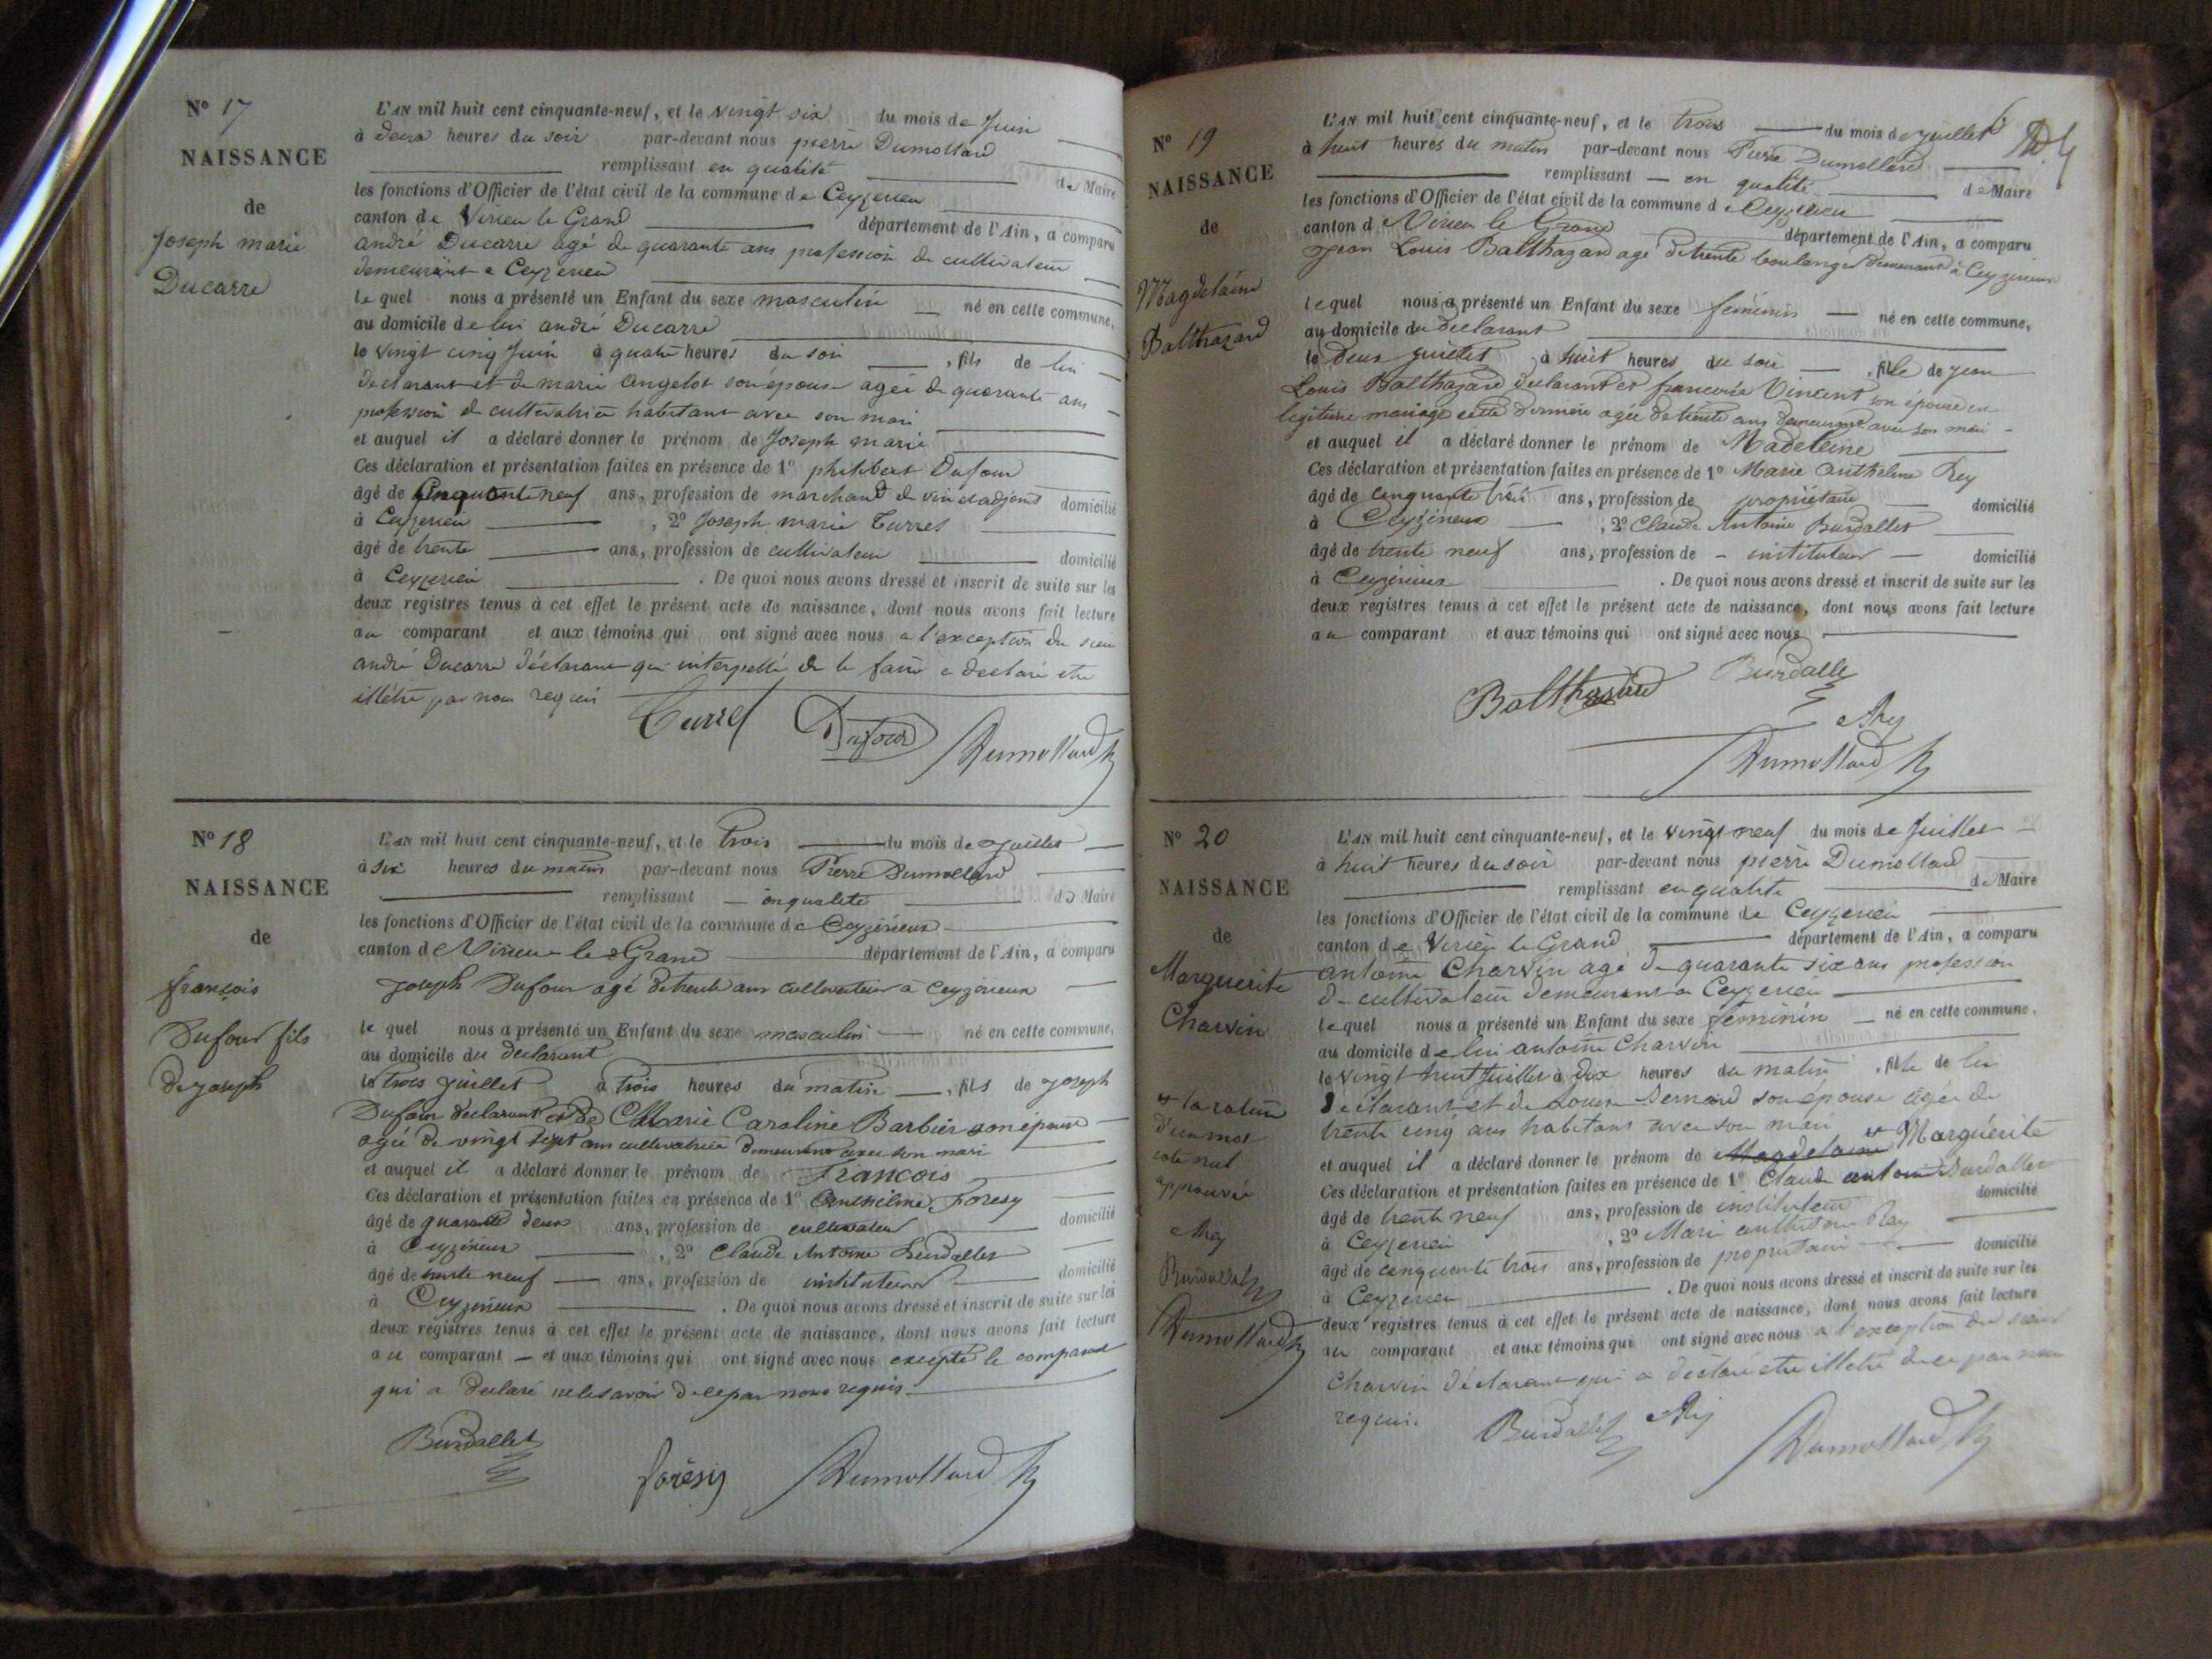 N° 17
NAISSANCE
de
Joseph marie
Ducarre
L'AN mil huit cent cinquante-neuf, et le vingt six du mois de Juin
à deux heures du soir par-devant nous pierre Dumollard
remplissant en qualité de Maire
les fonctions d'Officier de l'état civil de la commune de Ceyzerieu
canton de Virieu le Grand département de l'Ain, a comparu
andré Ducarre agé de quarante ans profession de cultivateur
demeurant a Ceyzerieu
le quel nous a présenté un Enfant du sexe masculin né en cette commune,
au domicile de lui andré Ducarre
le vingt cinq Juin à quatre heures du soir, fils de lui
declarant et de marie angelot son épouse agée de quarante ans
profession de cultivatrice habitant avec son mari
et auquel il a déclaré donner le prénom de Joseph marie
Ces déclaration et présentation faites en présence de 1° philibert Dufour
âgé de Cinquante neuf ans, profession de marchand de vin et adjoint domicilié
à Ceyzerieu, 2° Joseph marie Turrel
âgé de trente ans, profession de cultivateur domicilié
à Ceyzerieu. De quoi nous avons dressé et inscrit de suite sur les
deux registres tenus à cet effet le présent acte de naissance, dont nous avons fait lecture
au comparant et aux témoins qui ont signé avec nous a l'exception du sieur
andré Ducarre déclarant qui interpellé de le faire a declaré etre
illétré par nous requis
Turrel Dufour Dumollard
N° 18
NAISSANCE
de
françois
Dufour fils
de joseph
L'AN mil huit cent cinquante-neuf, et le trois du mois de juillet
à six heures du matin par-devant nous Pierre Dumollard
remplissant en qualité de Maire
les fonctions d'Officier de l'état civil de la commune de Ceyzérieux
canton de Virieu le Grand département de l'Ain, a comparu
joseph Dufour agé de trente ans cultivateur à Ceyzérieux
le quel nous a présenté un Enfant du sexe masculin né en cette commune,
au domicile du declarant
le trois juillet à trois heures du matin, fils de joseph
Dufour declarant et de Marie Caroline Barbier son épouse
agée de vingt sept ans cultivatrice demeurant avec son mari
et auquel il a déclaré donner le prénom de François
Ces déclaration et présentation faites en présence de 1° Anthelme Foresy
âgé de quarante deux ans, profession de cultivateur domicilié
à Ceyzérieux, 2° Claude Antoine Burdallet
âgé de trente neuf ans, profession de instituteur domicilié
à Ceyzérieux. De quoi nous avons dressé et inscrit de suite sur les
deux registres tenus à cet effet le présent acte de naissance, dont nous avons fait lecture
au comparant et aux témoins qui ont signé avec nous excepté le comparant
qui a declaré ne le savoir de ce par nous requis
Burdallet forésy Dumollard
N° 19
NAISSANCE
de
Magdelaine
Balthazard
L'AN mil huit cent cinquante-neuf, et le trois du mois de juillet
à huit heures du matin par-devant nous Pierre Dumollard
remplissant en qualité de Maire
les fonctions d'Officier de l'état civil de la commune d Ceyzerieu
canton d Virieu le Grand département de l'Ain, a comparu
Jean Louis Balthazard agé de trente boulanger demeurant à Ceyzerieux
le quel nous a présenté un Enfant du sexe féminin né en cette commune,
au domicile du declarant
le deux juillet à huit heures du soir, fille de jean
Louis Balthazard declarant et francoise Vincent son épouse en
legitime mariage cette derniere agée de trente ans demeurant avec son mari
et auquel il a déclaré donner le prénom de Madeleine
Ces déclaration et présentation faites en présence de 1° Marie anthelme Rey
âgé de cinquante trois ans, profession de propriétaire domicilié
à Ceyzérieux, 2° Claude Antoine Burdallet
âgé de trente neuf ans, profession de instituteur domicilié
à Ceyzérieux. De quoi nous avons dressé et inscrit de suite sur les
deux registres tenus à cet effet le présent acte de naissance, dont nous avons fait lecture
au comparant et aux témoins qui ont signé avec nous
Balthazard Burdallet
Rey
Dumollard
N° 20
NAISSANCE
de
Marguerite
Charvin
la rature
d'un mot
cote nul
approuvée
Rey
Burdallet
Dumollard
L'AN mil huit cent cinquante-neuf, et le vingt neuf du mois de Juillet
à huit heures du soir par-devant nous pierre Dumollard
remplissant en qualité de Maire
les fonctions d'Officier de l'état civil de la commune de Ceyzerieu
canton de Virieu le Grand département de l'Ain, a comparu
antoine Charvin agé de quarante six ans profession
de cultivateur demeurant a Ceyzerieu
le quel nous a présenté un Enfant du sexe féminin né en cette commune,
au domicile de lui antoine Charvin
le vingt huit Juillet à dix heures du matin, fille de lui
déclarant et de Louise Bernard son épouse agée de
trente cinq ans habitant avec son mari
et auquel il a déclaré donner le prénom de Magdelaine Marguérite
Ces déclaration et présentation faites en présence de 1° Claude antoine Burdallet
âgé de trente neuf ans, profession de instituteur domicilié
à Ceyzerieu, 2° Marie anthelme Rey
âgé de cinquante trois ans, profession de propriétaire domicilié
à Ceyzerieu. De quoi nous avons dressé et inscrit de suite sur les
deux registres tenus à cet effet le présent acte de naissance, dont nous avons fait lecture
au comparant et aux témoins qui ont signé avec nous a l'exception du sieur
Charvin déclarant qui a declaré etre illétré de ce par nous
requis.
Burdallet Rey Dumollard